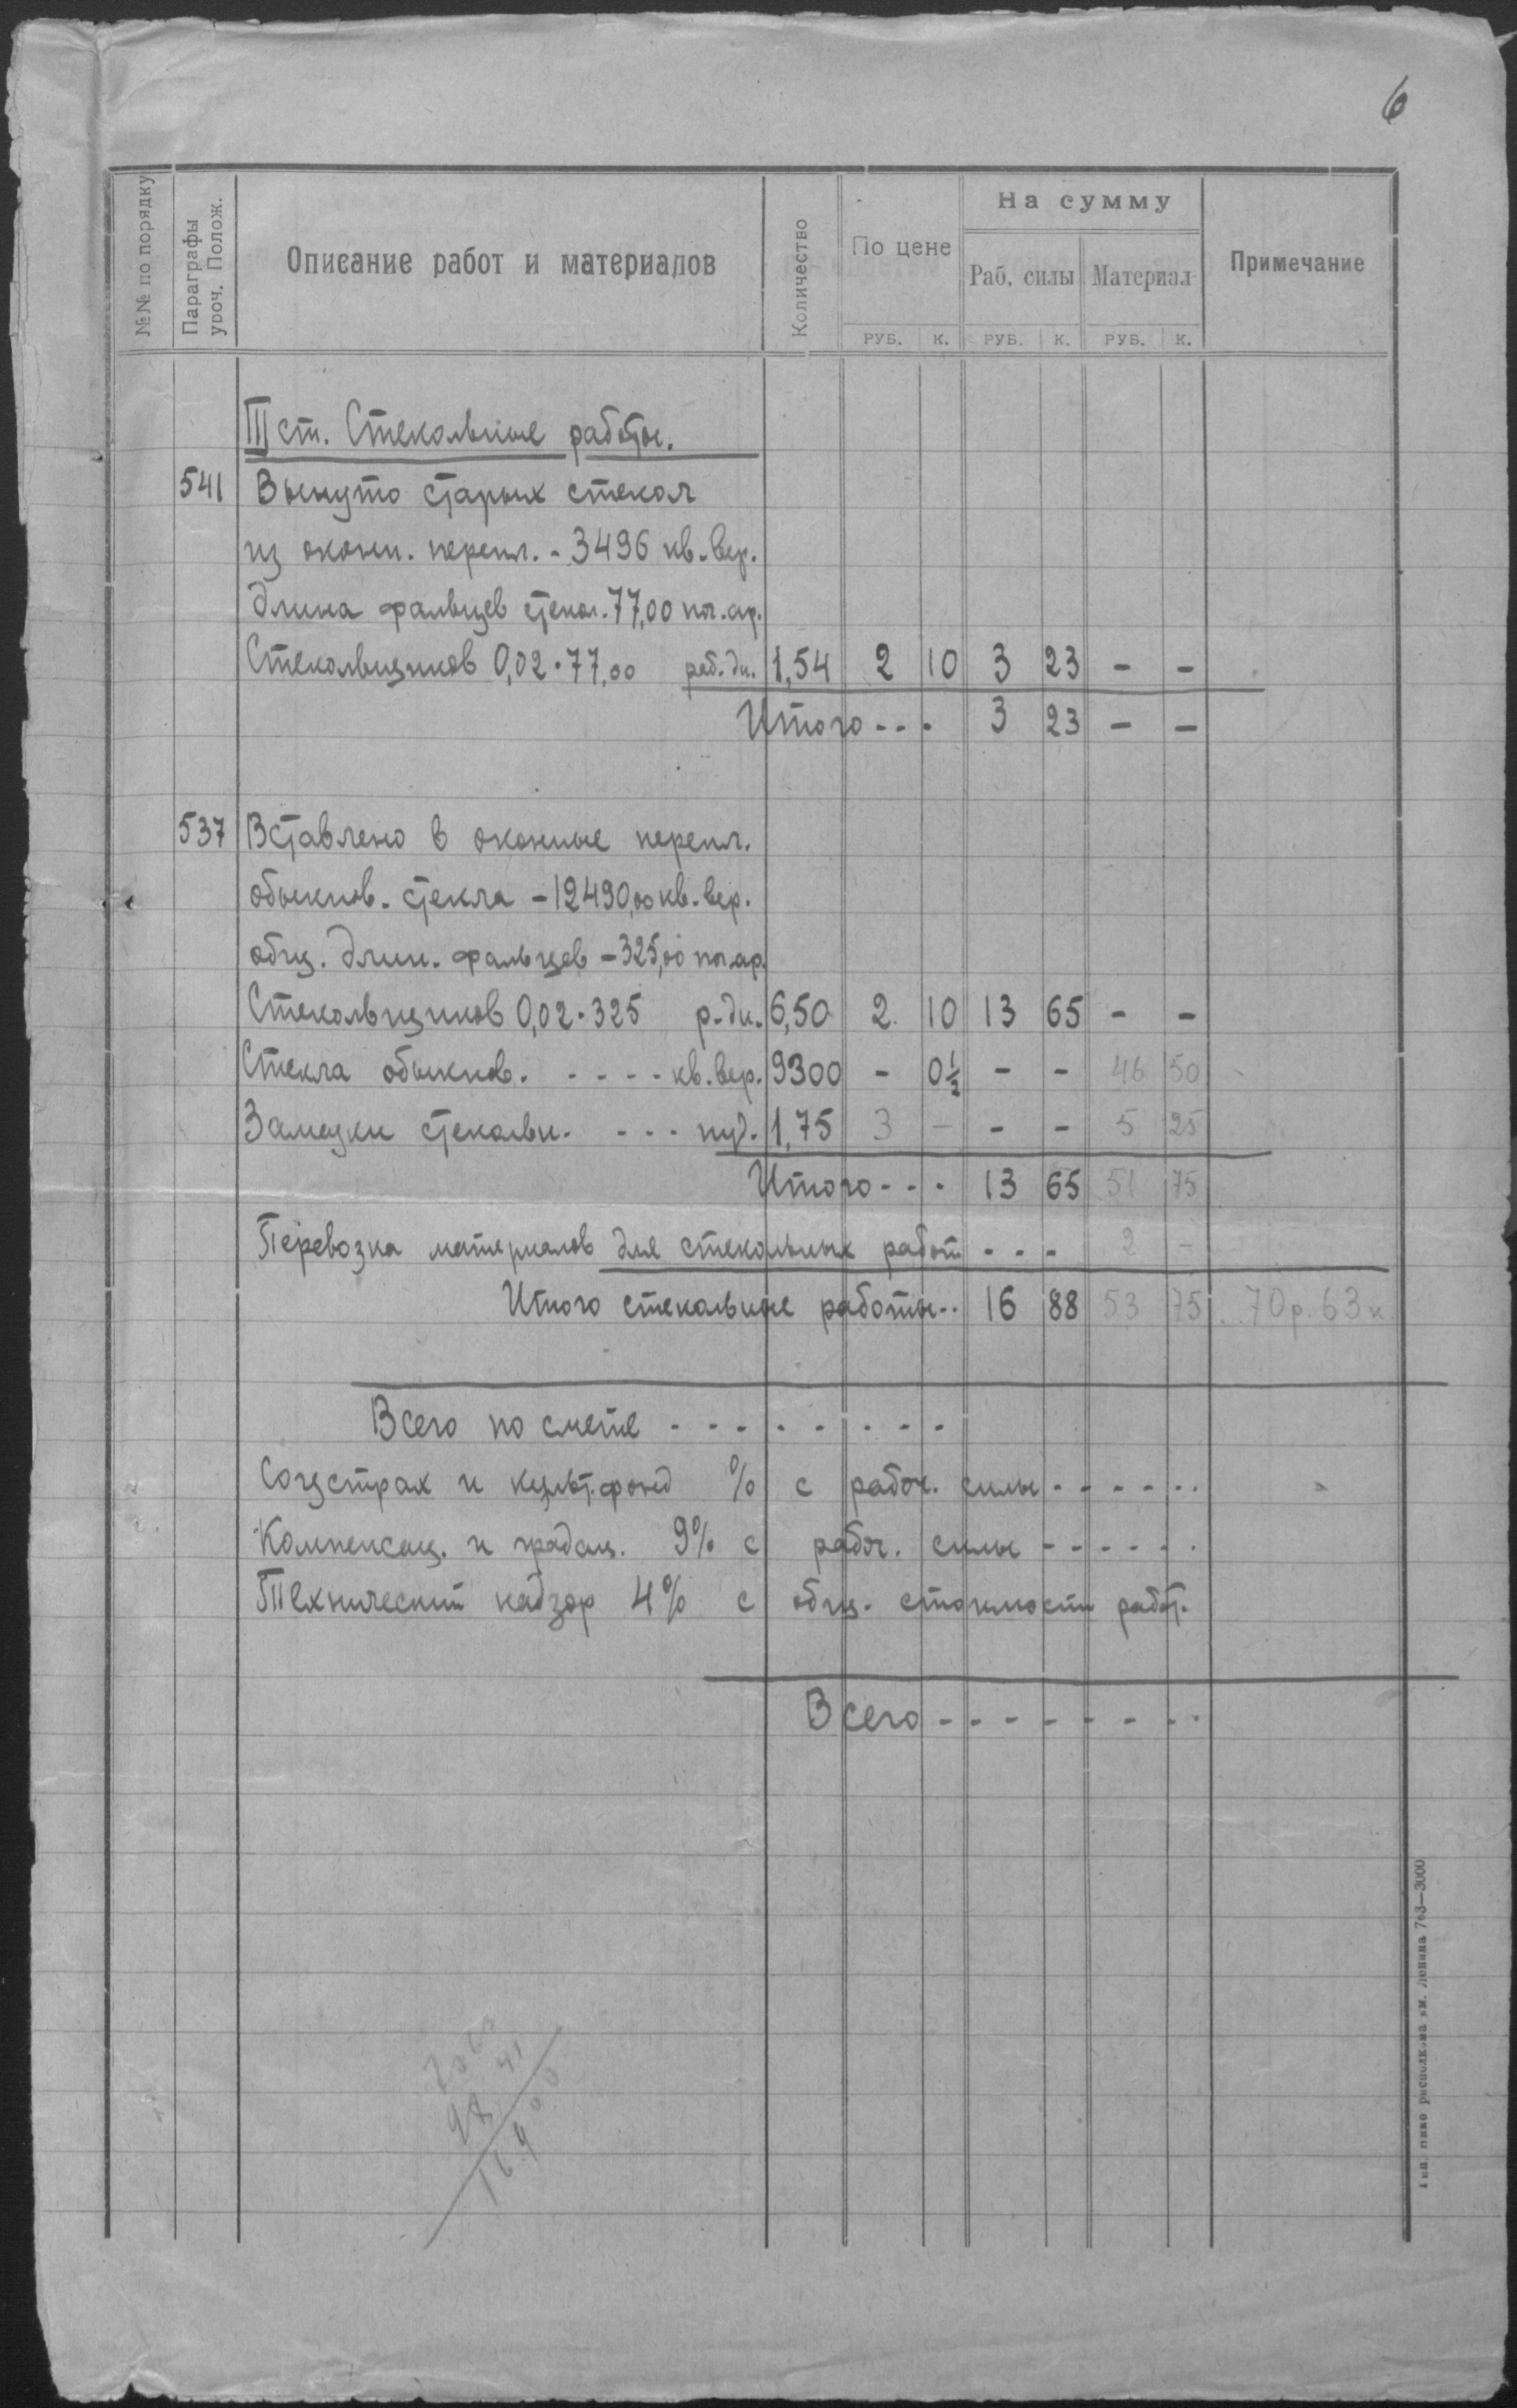 6
№№ по порядку
Параграфы уроч. Полож.
Описание работ и материалов
Количество
По цене
На сумму
Раб. силы Материал
Примечание
РУБ. К. РУБ. К. РУБ. К.
III ст. Стекольные работы.
541 Вынуто старых стекол
из оконн. перепл. - 3496 кв. вер.
Длина фальцев стекол. 77,00 пог. ар.
Стекольщиков 0,02·77,00 раб. дн. 1,54 2 10 3 23 - -
Итого - - - 3 23 - -
537 Вставлено в оконные перепл.
обыкнов. стекла - 12490,00 кв. вер.
общ. длин. фальцев - 325,00 пог. ар.
Стекольщиков 0,02·325 р. дн. 6,50 2 10 13 65 - -
Стекла обыкнов. - - - - кв. вер. 9300 - 0½ - - 46 50
Замазки стекольн. - - - пуд. 1,75 3 - - - 5 25
Итого - - - 13 65 51 75
Перевозка материалов для стекольных работ - - - 2 -
Итого стекольные работы - - 16 88 53 75 70 р. 63 к.
Всего по смете - - - - - - - -
Соцстрах и культ. фонд % с рабоч. силы - - - - - -
Компенсац. и 9% с рабоч. силы - - - - - -
Технический надзор 4% с общ. стоимости работ.
Всего - - - - - - - -
70 63
98 41
169 00
исполкома им. Ленина 763—3000